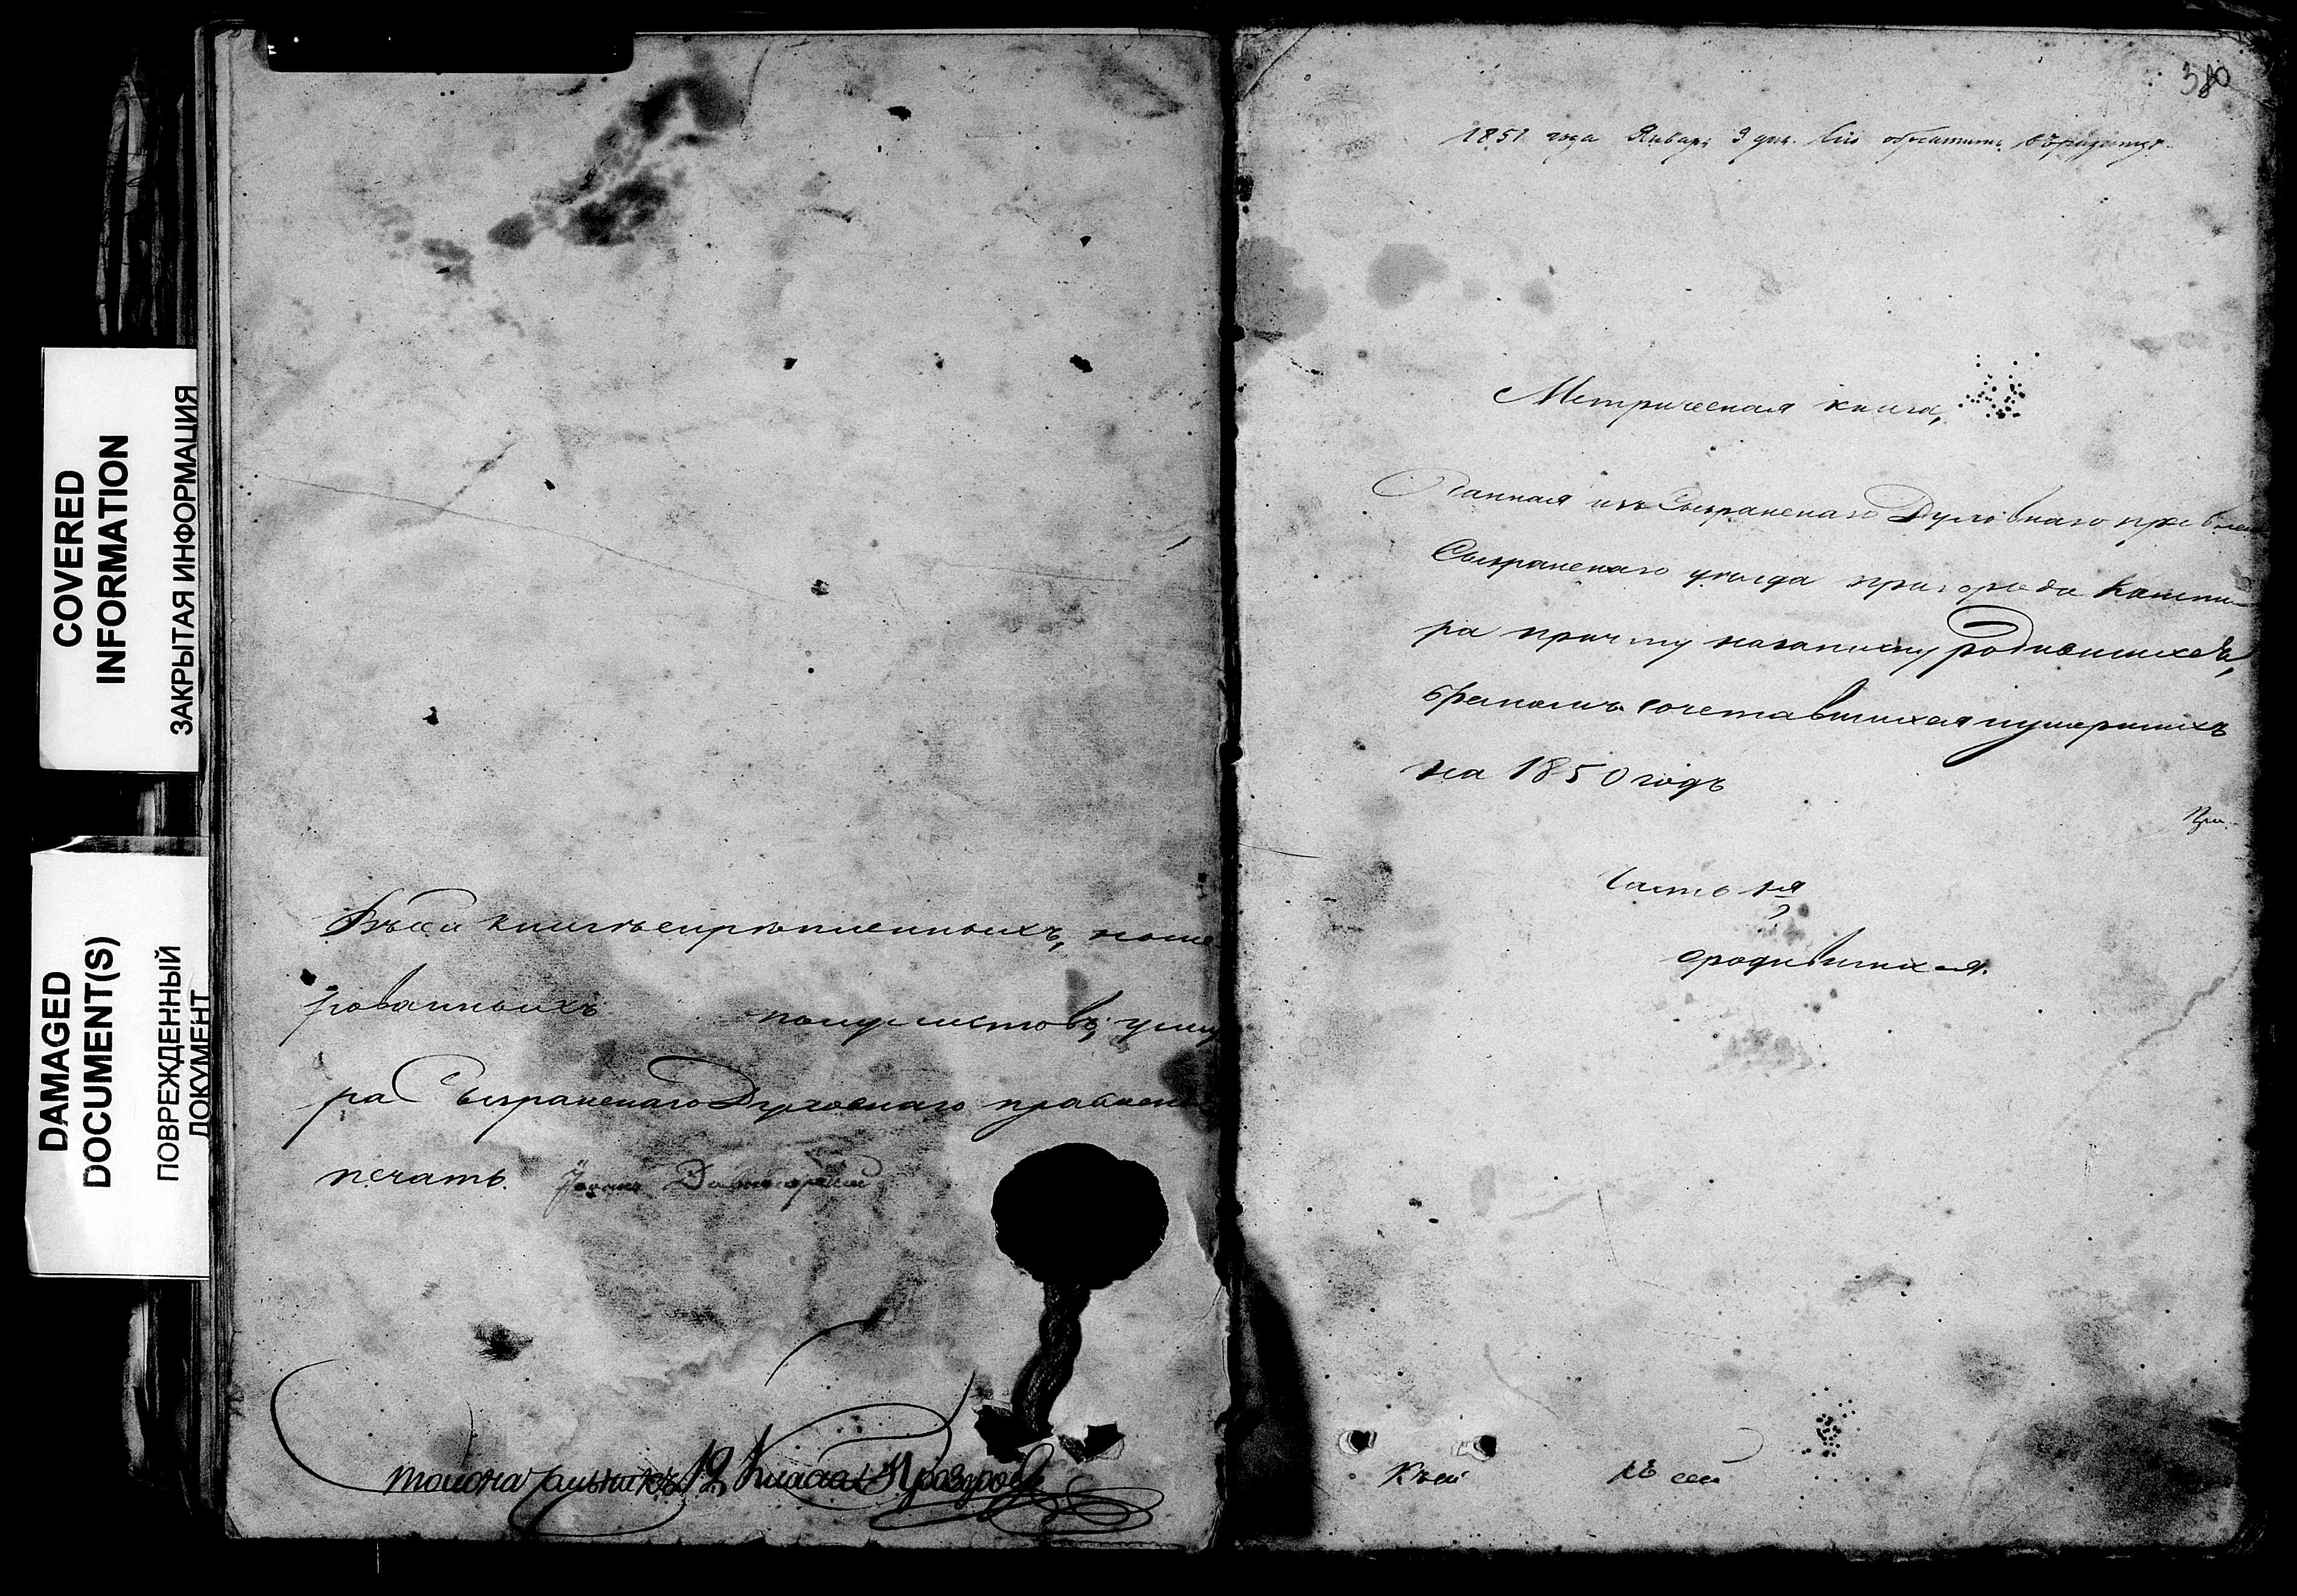 COVERED
INFORMATION
ЗАКРЫТАЯ ИНФОРМАЦИЯ
DAMAGED
DOCUMENT(S)
ПОВРЕЖДЕННЫЙ
ДОКУМЕНТ
книгѣ скрѣпленныхъ, номе
рованныхъ полулистовъ,
ра Сызранскаго Духовнаго правлен
печать. Iоаннъ
12 класса
380
1851 года Январ. 9 дня. Сію
Метрическая книга,
Данная изъ Сызранскаго Духовнаго правлен
Сызранскаго уѣзда пригорода Кашпи
ра причту на записку родившихся,
бракомъ сочетавшихся и умершихъ
на 1850 годъ
Часть 1я
о родившихся.
Къ сей